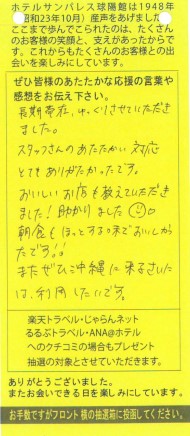 ホテルサンパレス球陽館は1948年
(昭和23年10月) 産声をあげました。
ここまで歩んでこられたのは、たくさん
のお客様の笑顔と、支えがあったからで
す。これからもたくさんのお客様との出
会いを楽しみにしています。
ぜひ皆様のあたたかな応援の言葉や
感想をお伝え下さい。
長期滞在、ゆっくりさせていただき
ました。
スタッフさんのあたたかい対応
とてもありがたかったです。
おいしいお店も教えていただき
ました！助かりました
朝食もほっとする味でおいしかっ
たです!!
またぜひ沖縄に来るさいに
は、利用したいです。
楽天トラベル・じゃらんネット
るるぶトラベル・ANA@ホテル
へのクチコミの場合もプレゼント
抽選の対象とさせていただきます。
ありがとうございました。
またお会いできる日を楽しみにしています。
お手数ですがフロント横の抽選箱に投函してください。